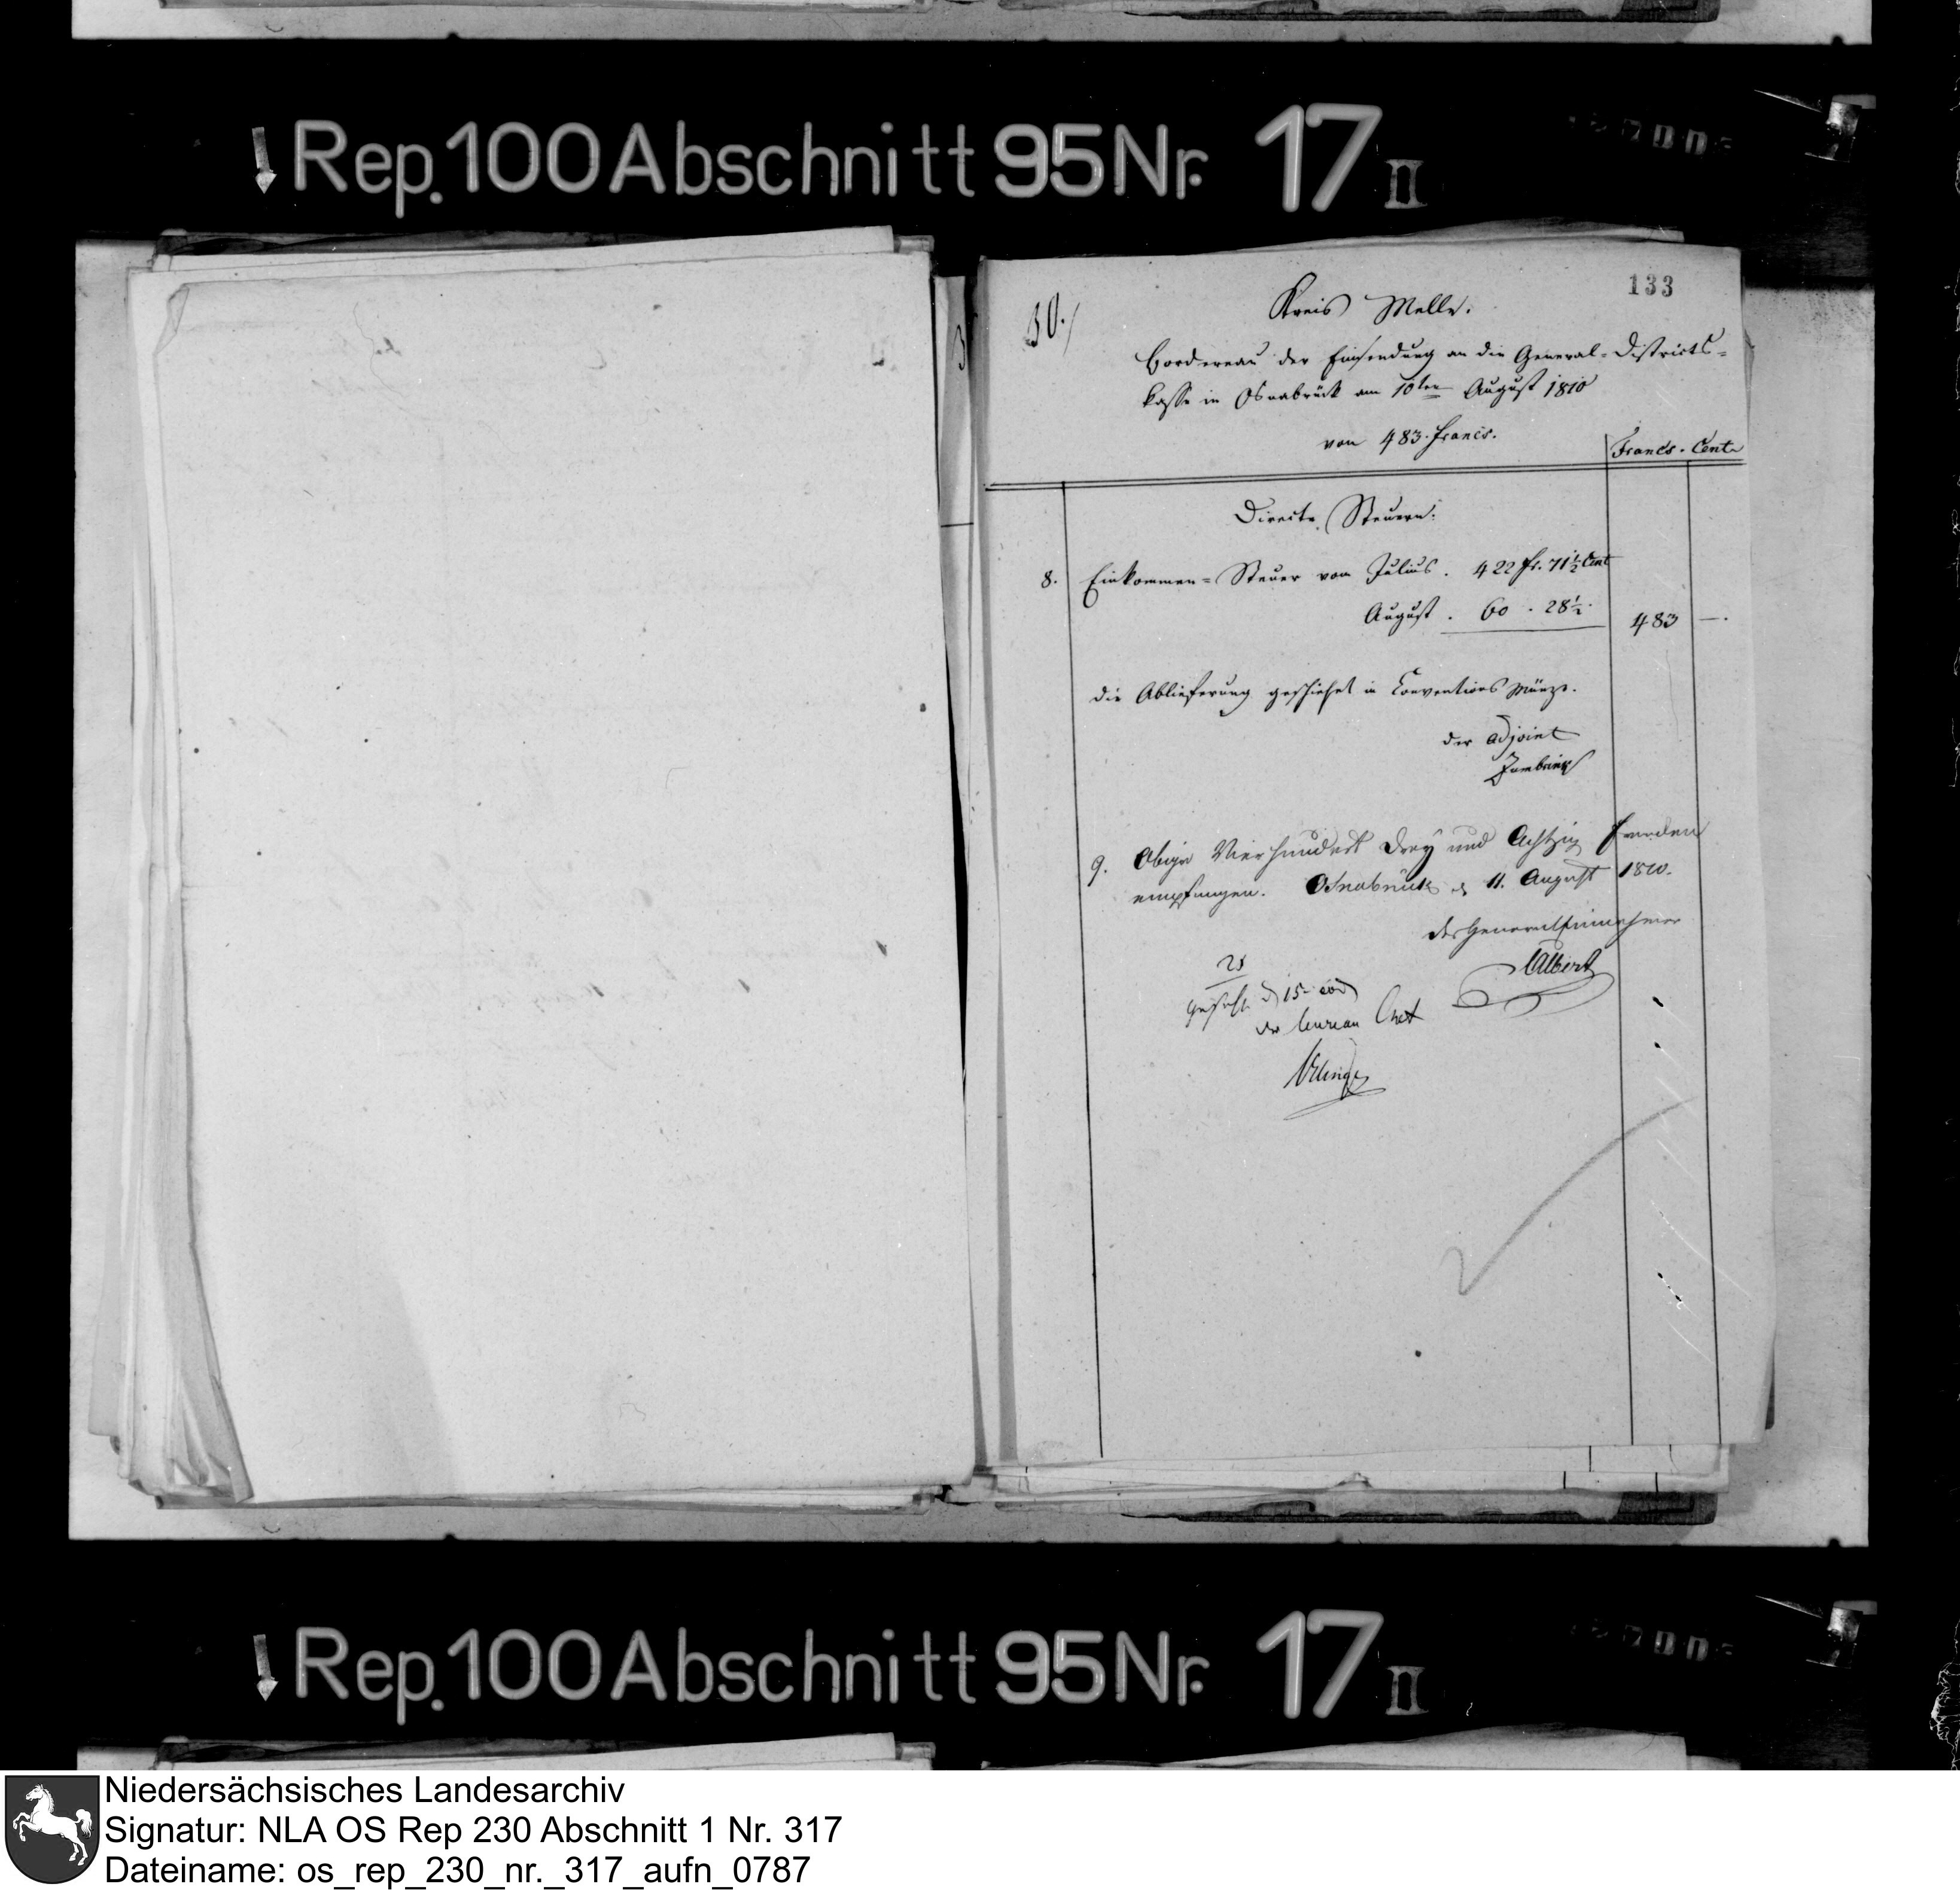 Rep. 100 Abschnitt 95 Nr. 17 II
133
30.
Kreis Melle.
Bordereau der Einsendung an die General-Districts-
kasse in Osnabrück am 10ten August 1810
von 483. francs.
Francs. Cent
Directe Steuern.
8. Einkommen-Steuer vom Julius. 422 fr. 71½ Cent
August. 60. 28½. 483 —.
die Ablieferung geschiehet in Conventions Münze.
der adjoint
9. Obige Vier hundert Drey und Achtzig franken
empfangen. Osnabrück d 11. August 1810.
der General Einnehmer
Albert
gesehn d 15
der bureau Chef
Rep. 100 Abschnitt 95 Nr. 17 II
Niedersächsisches Landesarchiv
Signatur: NLA OS Rep 230 Abschnitt 1 Nr. 317
Dateiname: os_rep_230_nr._317_aufn_0787